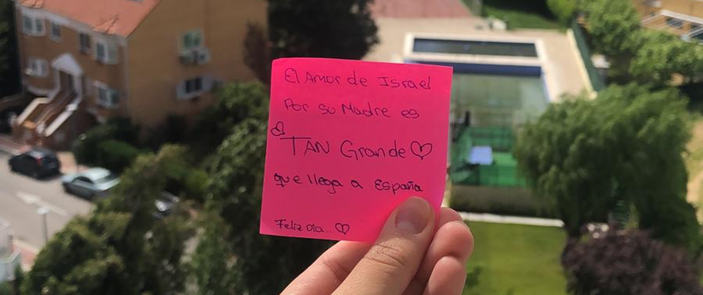 El Amor de Israel
Por su Madre es
TAN Grande
que llega a España
Feliz dia..